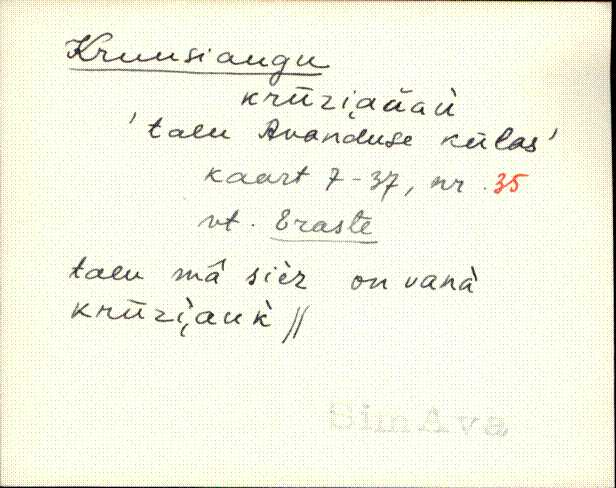 Kruusiaugu
krūzi̮aŭGù
'talu Avanduse külas'
kaart 7-37, nr. 35
vt. Eraste
talu mâ sièz on vanà
krūzi̮auk̀ //
SimAva